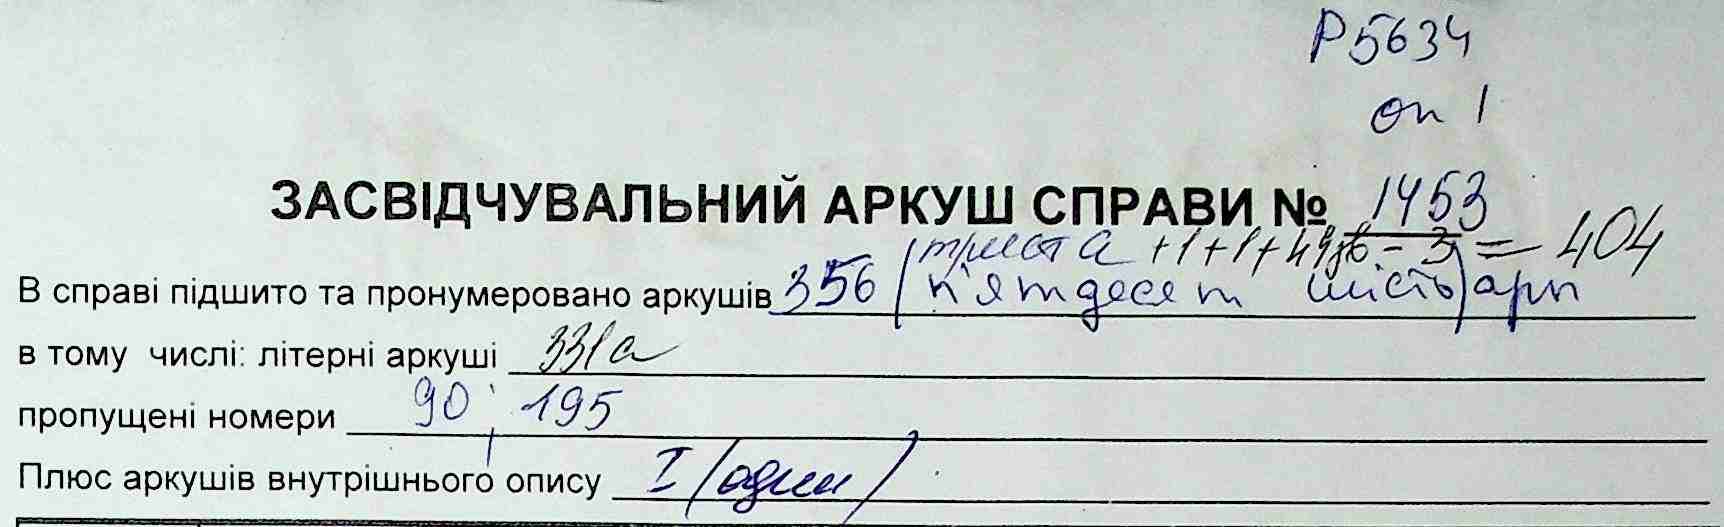 Р5634
оп 1
ЗАСВІДЧУВАЛЬНИЙ АРКУШ СПРАВИ № 1453
(триста +1+1+49зв - 3 = 404
В справі підшито та пронумеровано аркушів 356 п'ятдесят шість) арк
в тому числі: літерні аркуші 331а
пропущені номери 90, 195
Плюс аркушів внутрішнього опису I (один)